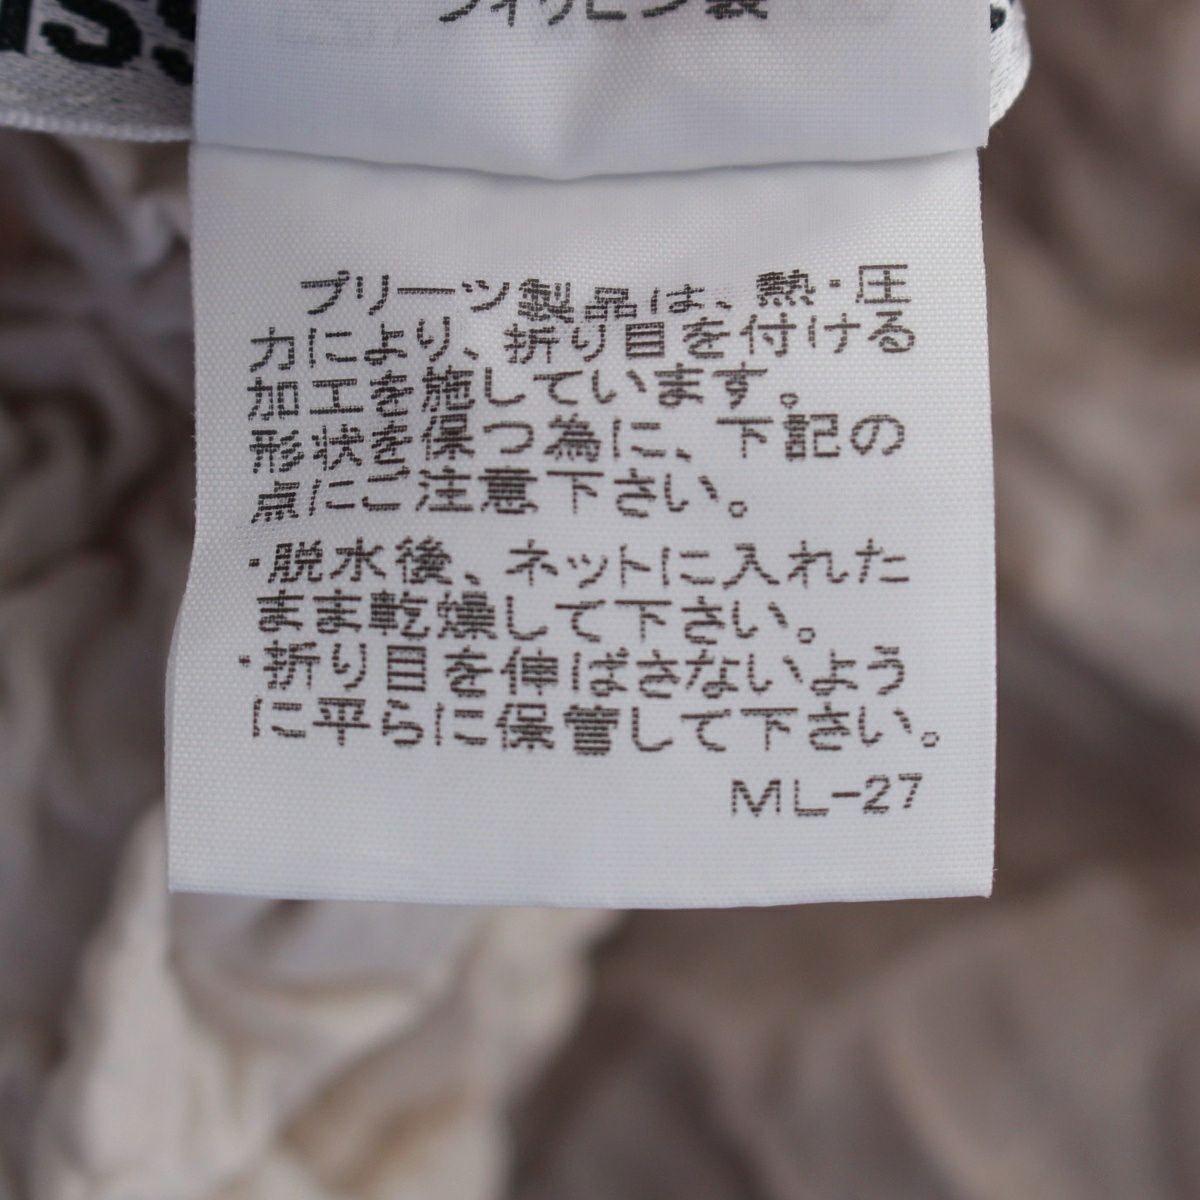 フィリピン製
プリーツ製品は、熱・圧
力により、折り目を付ける
加工を施しています。
形状を保つ為に、下記の
点にご注意下さい。
・脱水後、ネットに入れた
まま乾燥して下さい。
・折り目を伸ばさないよう
に平らに保管して下さい。
ML-27